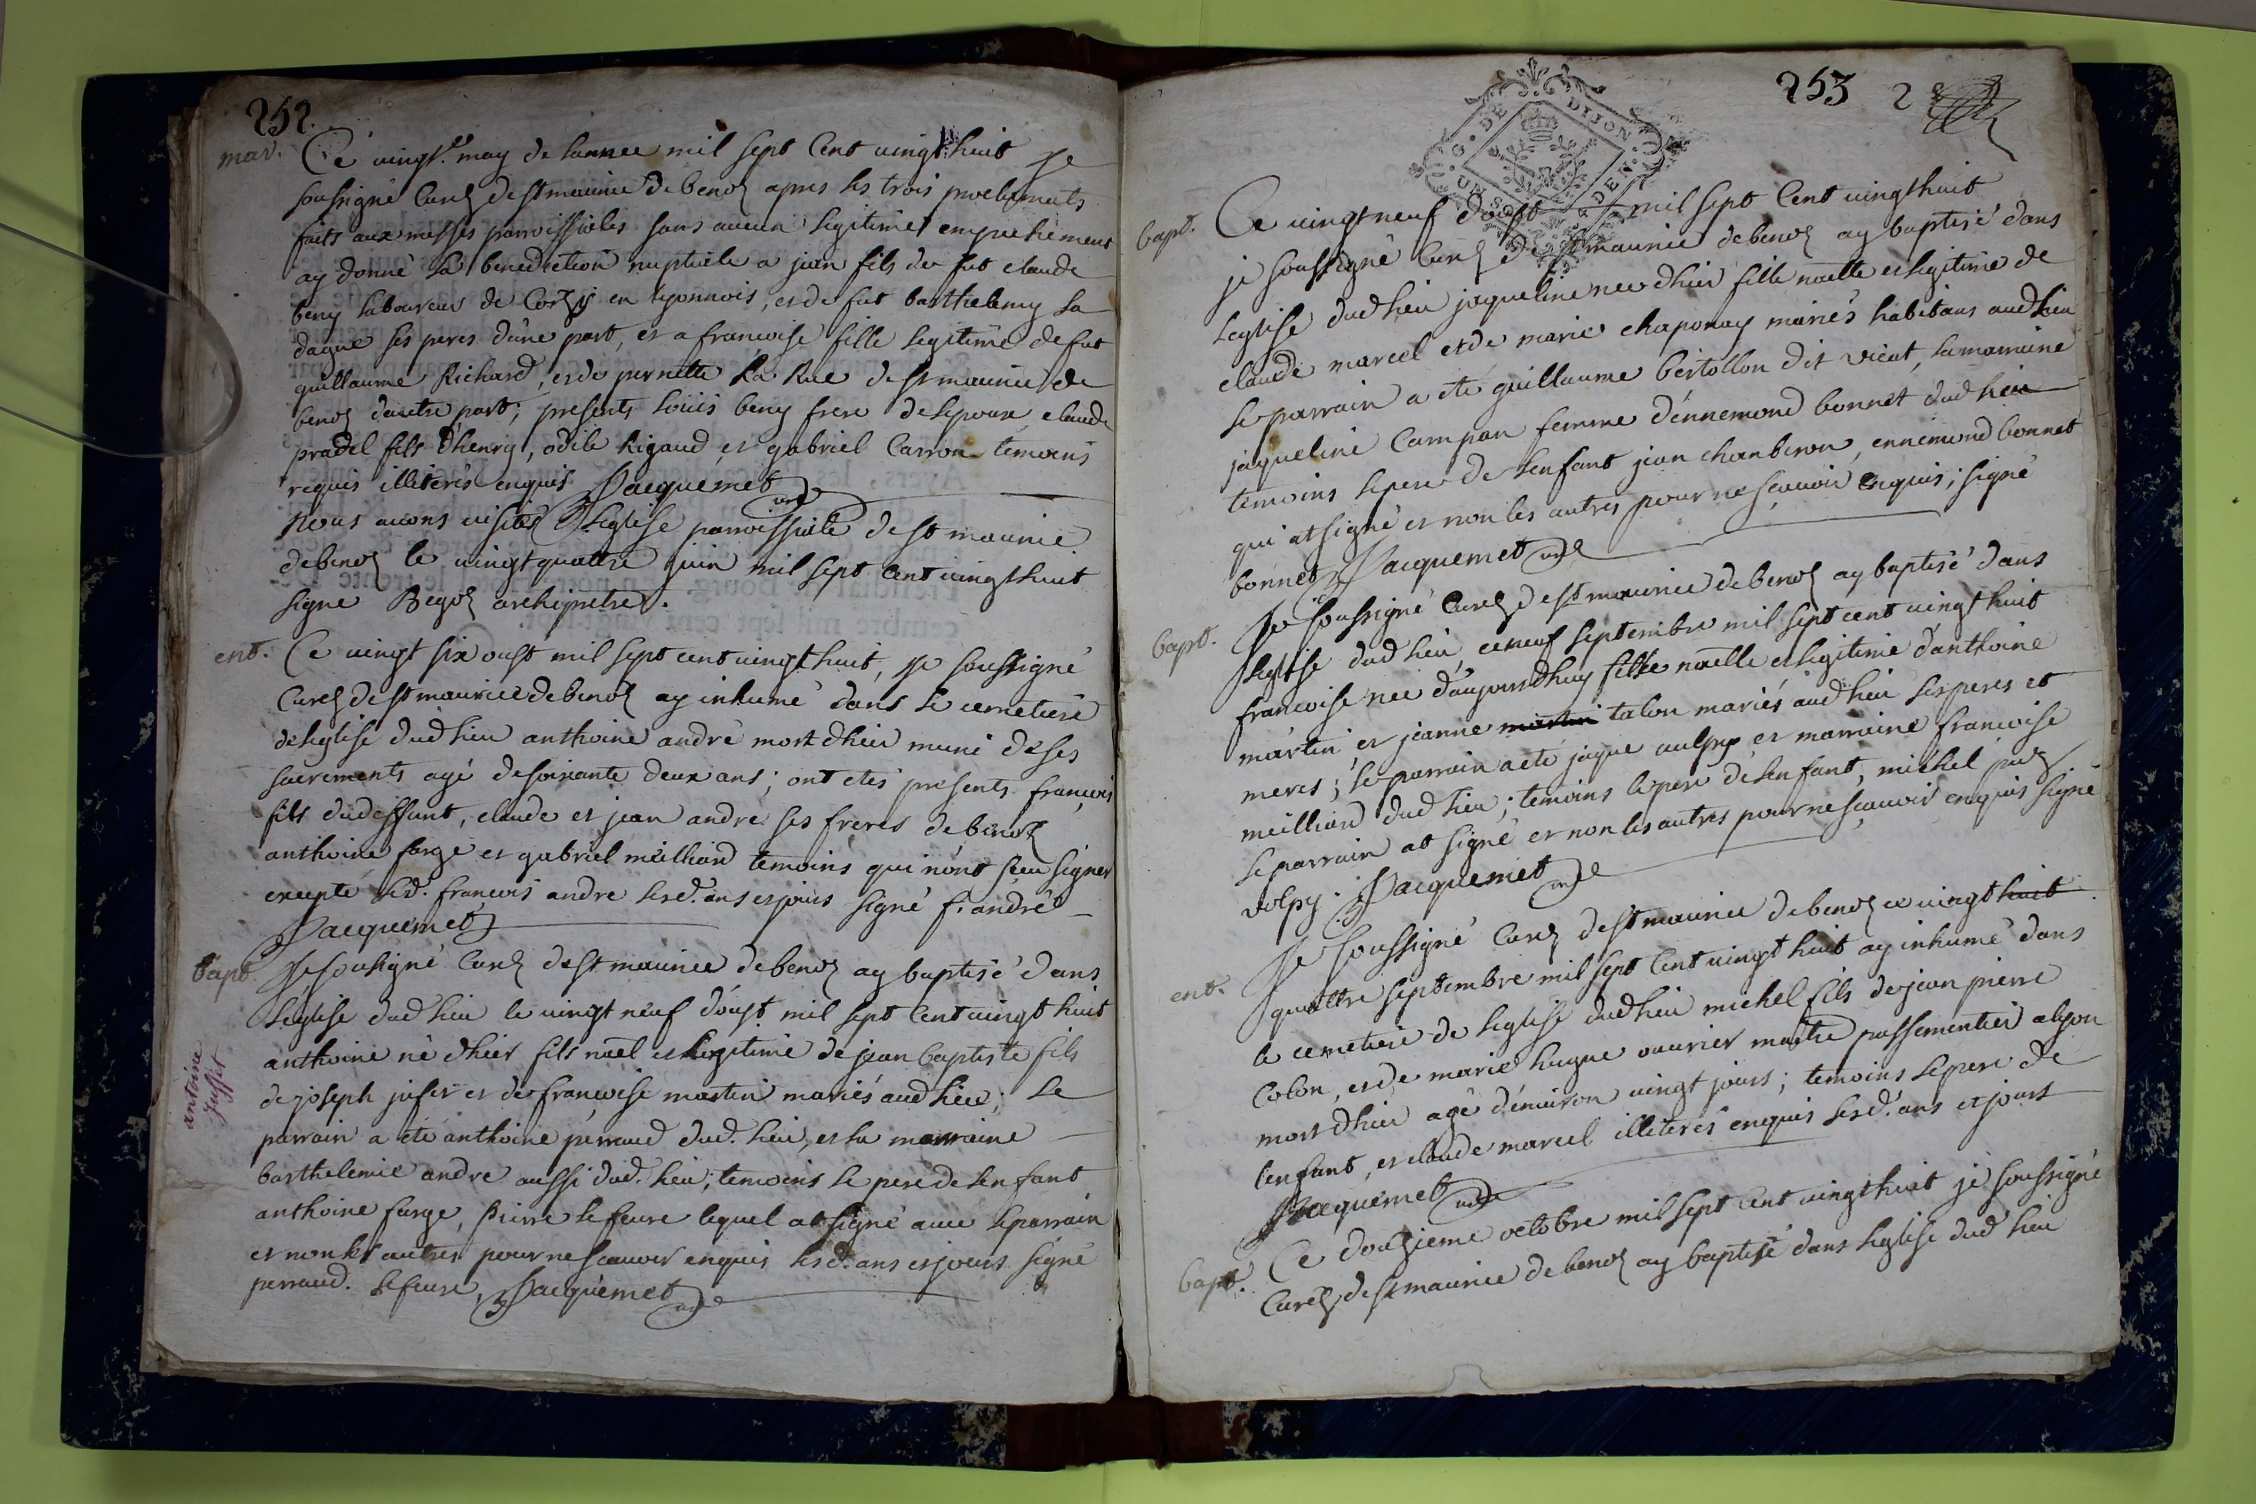 252.
mar. Ce vingt.e may de lannee mil sept Cent vingt huit Je
soussigné Curé de st maurice de benoz apres les trois proclamats
faits aux messes parroissiales sans aucun legitime empechement
ay donné la benediction nuptiale a jean fils de fut claude
beny laboureur de en lyonnois, et de fut barthelemy la
dague ses peres d'une part, et a francoise fille legitime de fut
guillaume Richard, et de pernette La Rue de st maurice de
benoz dautre part; presents loüis beny frere de lepoux, claude
pradel fils d'henry, odile Rigaud et gabriel Carron temoins
requis illiterés enquis Jacquemet curé
Nous avons visité Leglise parroissiale de st maurice
de benoz le vingt quattre juin mil sept Cent vingt huit
signé Begoz archipretre.
ent. Ce vingt six oust mil sept cent vingt huit, Je soussigné
Curé de st maurice de benoz ay inhumé dans le cemetiere
de leglise dud lieu anthoine andré mort d'hier muni de ses
sacrements agé de soixante deux ans; ont etés presents francois
fils dud deffunt, claude et jean andre ses freres de benoz
anthoine farge et gabriel meilliard temoins qui n'ont sceu signer
excepté led. francois andre lesd. ans et jours signé f. andré
Jacquemet
bapt. Je sousigné Curé de st maurice de benoz ay baptisé dans
leglise dud lieu le vingt neuf d'oust mil sept Cent vingt huit
anthoine né d'hier fils nael et legitime de jean baptiste fils
antoine
jusset
de joseph jufer et de francoise martin mariés aud lieu; Le
parrain a été anthoine perraud dud. lieu, et la marraine
barthelemie andre aussi dud. lieu; temoins le pere de lenfant
anthoine farge, pierre lefeure lequel at signé avec le parrain
et non les autres pour ne scavoir enquis lesd. ans et jours signé
perraud. lefeure, Jacquemet curé
253 2
G. DE DIJON
bapt. Ce vingt neuf d'oust mil sept Cent vingt huit
je soussigné Curé de st maurice de benoz ay baptisé dans
leglise dud lieu jaqueline nee d'hier fille naelle et legitime de
claude marcel et de marie chaponay mariés habitans aud lieu
le parrain a eté guillaume bertollon dit vient, la marraine
jaqueline Campan femme d'ennemond bonnet dud lieu
temoins le pere de lenfant jean chanberon, ennemond bonnet
qui at signé et non les autres pour ne scavoir enquis; signé
bonnet Jacquemet curé
bapt. Je soussigné Curé de st maurice de benoz ay baptisé dans
leglise dud lieu, ce neuf septembre mil sept cent vingt huit
francoise nee d'aujourdhuy fille naelle et legitime d'anthoine
martin et jeanne martin talon mariés aud lieu ses peres et
meres; le parrain a eté jaque aulpy et marraine francoise
meilliard dud lieu; temoins le pere de lenfant, michel
le parrain at signé et non les autres pour ne scavoir enquis signé
volpy. Jacquemet curé
ent. Je soussigné Curé de st maurice de benoz ce vingt huit
quattre septembre mil sept Cent vingt huit ay inhumé dans
le cemetiere de leglise dud lieu michel fils de jean pierre
Colon, et de marie hugue ouvrier maitre passementier a lyon
mort d'hier agé d'environ vingt jours; temoins le pere de
lenfant, et claude marcel illiterés enquis lesd. ans et jours
Jacquemet curé
bapt. Ce douzieme octobre mil sept Cent vingt huit je soussigné
Curé de st maurice de benoz ay baptisé dans leglise dud lieu